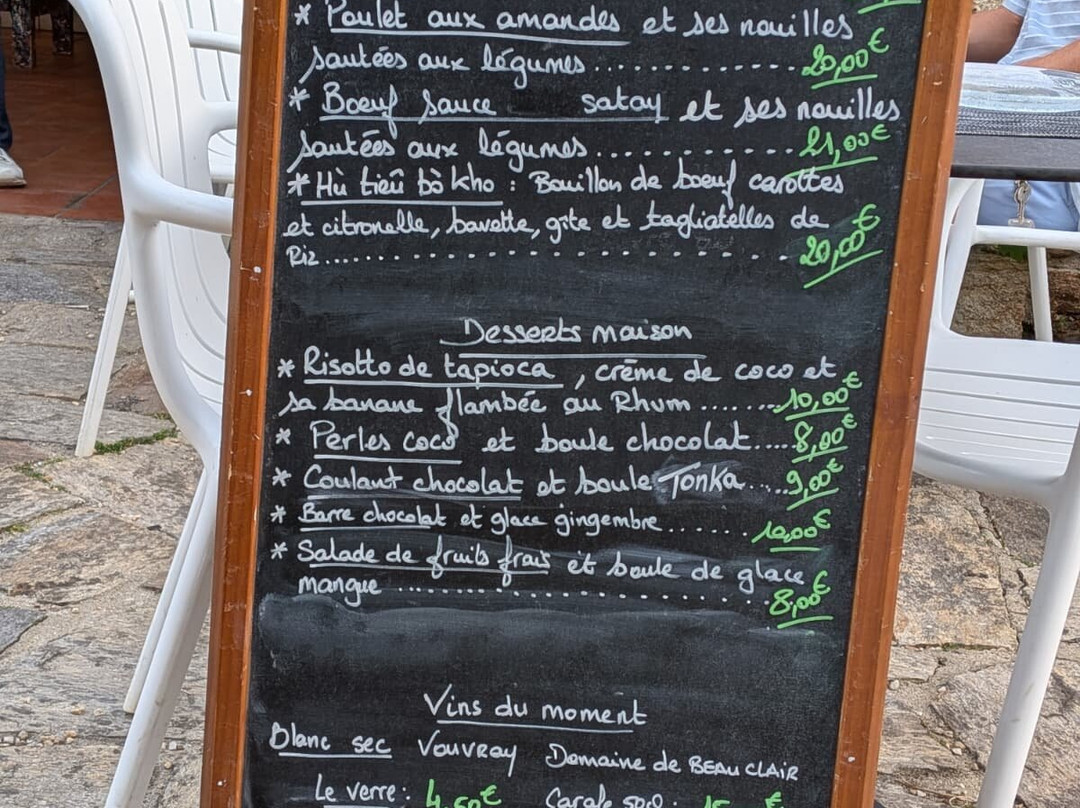 * Poulet aux amandes et ses nouilles
sautées aux légumes.............20,00€
* Boeuf sauce satay et ses nouilles
sautées aux légumes.............21,00€
* Hù tiêú bò kho : Bouillon de boeuf carottes
et citronelle, bavette, gîte et tagliatelles de
Riz.............................20,00€
Desserts maison
* Risotto de tapioca, crème de coco et
sa banane flambée au Rhum.......10,00€
* Perles coco et boule chocolat....8,00€
* Coulant chocolat et boule Tonka.....9,00€
* Barre chocolat et glace gingembre......10,00€
* Salade de fruits frais et boule de glace
mangue..........................8,00€
Vins du moment
Blanc sec Vouvray Domaine de BEAU CLAIR
Le verre : 4,50€ Carafe 50cl :